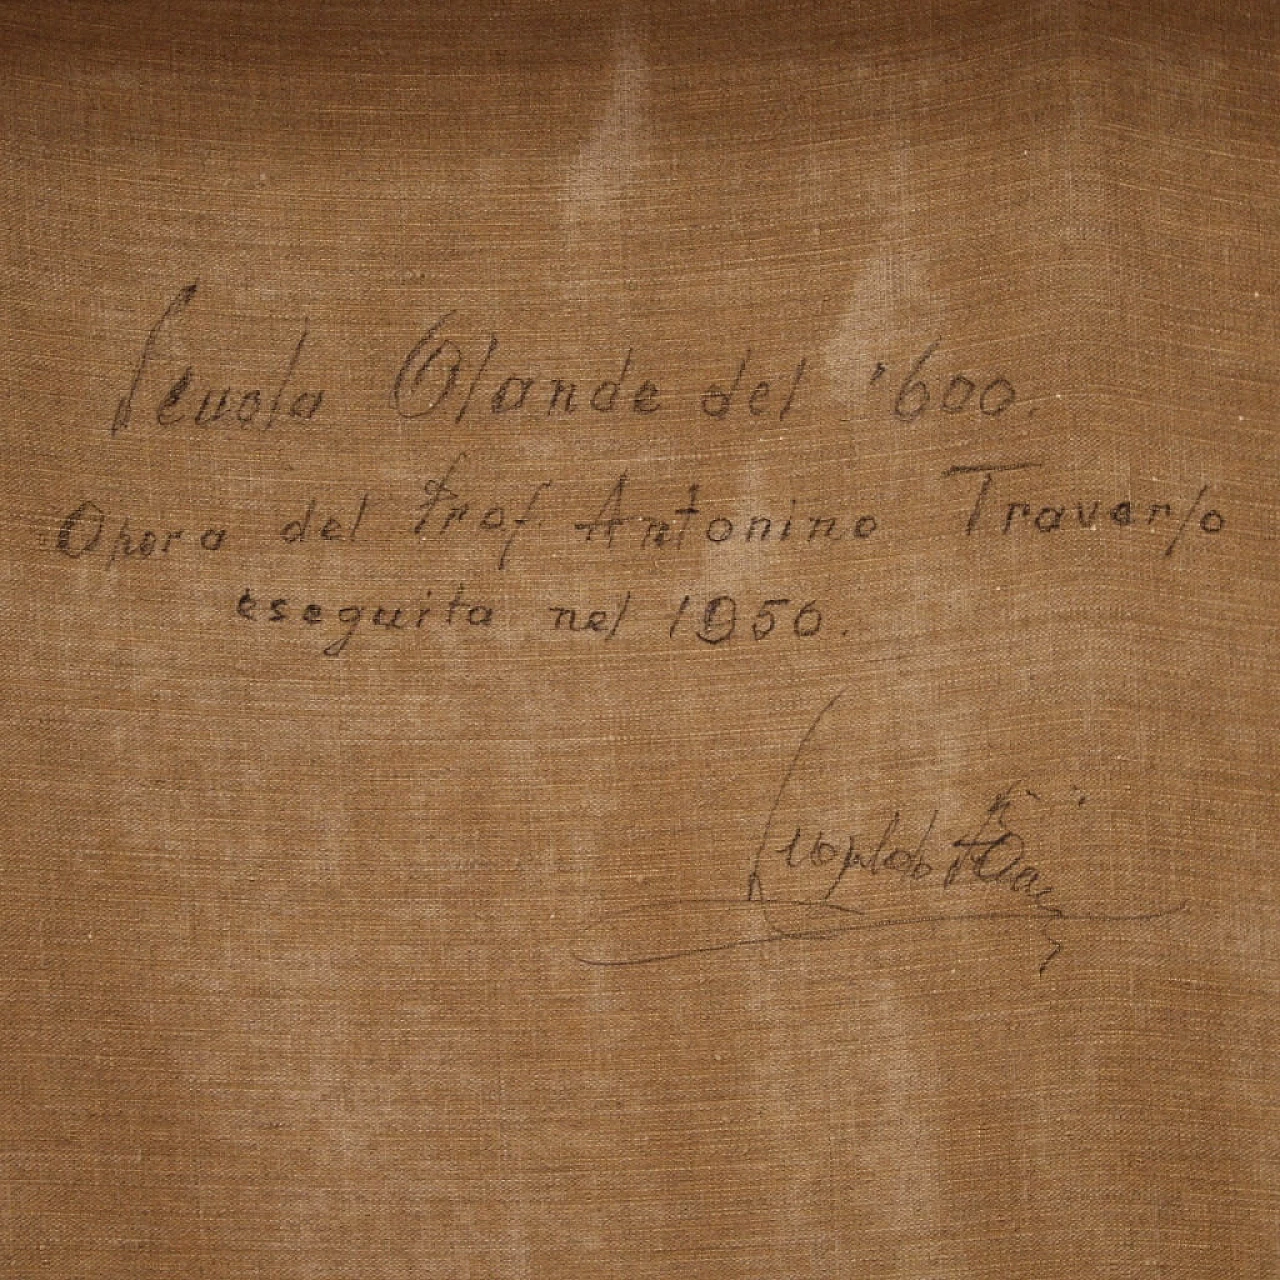 Scuola Olande del '600.
Opera del Prof. Antonino Traverso
eseguita nel 1950.
Leopoldo